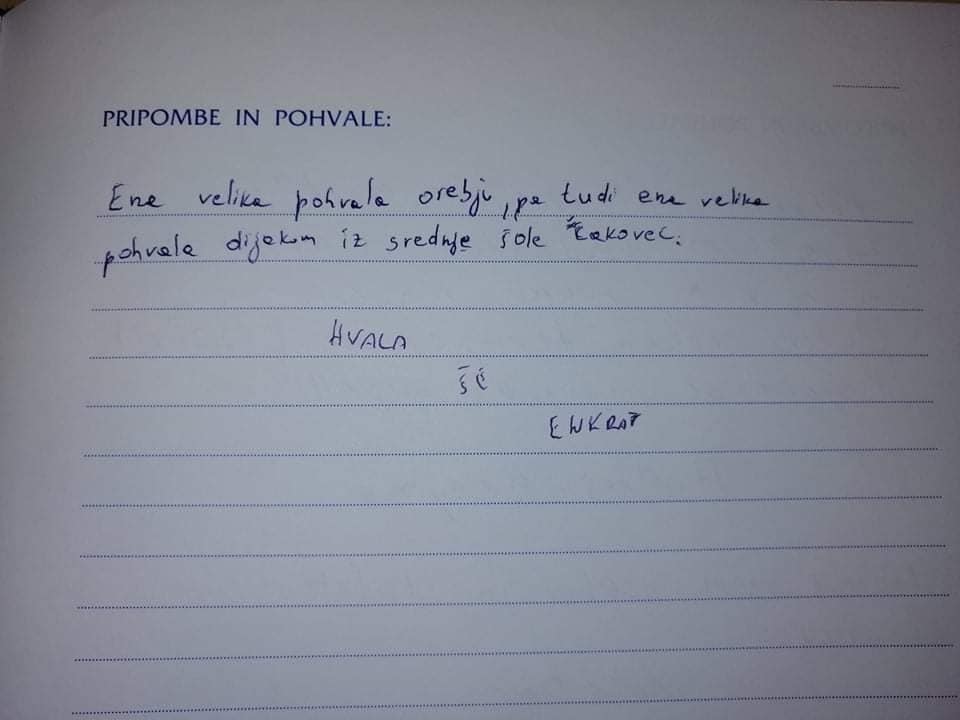 PRIPOMBE IN POHVALE:
Ena velika pohvala osebju, pa tudi ena velika
pohvala dijakom iz srednje šole Čakovec.
HVALA
ŠE
ENKRAT